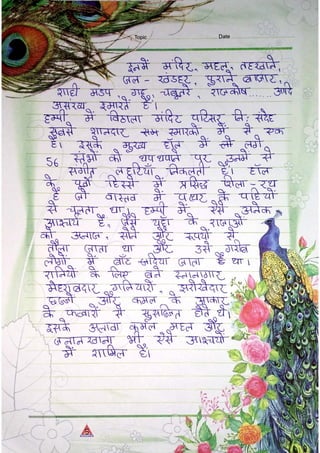 Topic Date
इनमें मंदिर, महल, तहखाने,
जल - खंडहर, पुराने बाजार,
शाही मंडप, गढ़, चबूतरे, राजकोष....... आदि
असंख्य इमारतें हैं।
हम्पी में विठाला मंदिर परिसर निः संदेह
सबसे शानदार स्मारकों में से एक
है। इसके मुख्य हॉल में लगे
56 स्तंभों को थपथपाने पर उनमें से
संगीत लहरियां निकलती हैं। हॉल
के पूर्वी हिस्से में प्रसिद्ध शिला-रथ
है जो वास्तव में पत्थर के पहियों
से चलता था। हम्पी में ऐसे अनेक
आश्चर्य हैं, जैसे यहां के राजाओं
को अनाज, सोने और रूपयों से
तौला जाता था और उसे गरीब
लोगों में बांट दिया जाता था।
रानियों के लिए बने स्नानागार
मेहराबदार गलियारों, झरोखेदार
छज्जों और कमल के आकार
के फव्वारों से सुसज्जित होते थे।
इसके अलावा कमल महल और
जनानखाना भी ऐसे आश्चर्यों
में शामिल हैं।